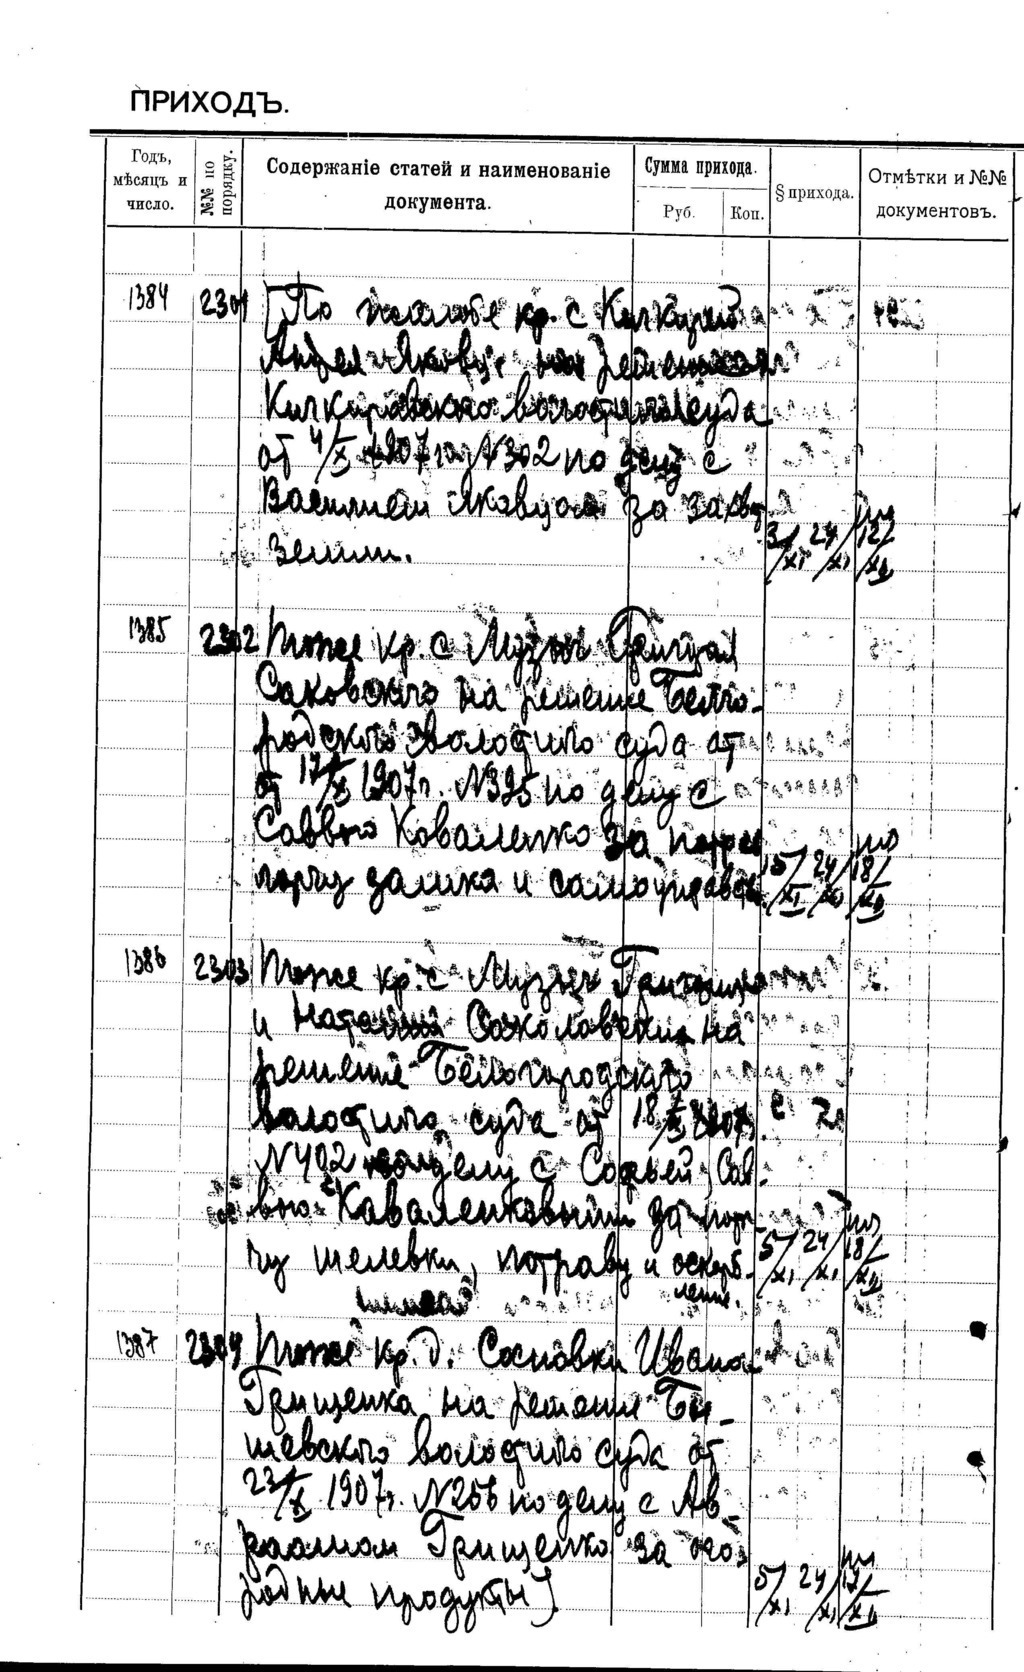 ПРИХОДЪ.
Годъ, мѣсяцъ и число.
№№ по порядку.
Содержаніе статей и наименованіе документа.
Сумма прихода.
Руб.
Коп.
§ прихода.
Отмѣтки и №№ документовъ.
1384 2301 [По жалобе кр. с
Яковца на решение
волостного суда
от 4/X 1907 года N302 по делу с
Василием Яковцом за захват
земли.
3/XI 24/XI 12/XII
1385 2302 Тоже кр. с Музычи Григория
Саковского на решение Белго-
родского волостного суда от
от 17/X 1907 г. N395 по делу с
Саввою Коваленко за
порчу замка и самоуправство
15/XI 24/XI 18/XII
1386 2303 Тоже кр. с Музычи Григория
и Наталии Соколовских на
решение Белогородского
волостного суда от 18/X 1907
N402 по делу с Софьей, Сав-
вою Коваленковыми за пор-
чу шелевки, потраву и оскорб-
ление.
5/XI 24/XI 18/XII
1387 2304 Тоже кр. д. Сосновки Ивана
Грищенка на решение Бы-
шевского волостного суда от
23/X 1907 г. N256 по делу с Ав-
раамом Грищенко за ого-
родные продукты].
5/XI 24/XI